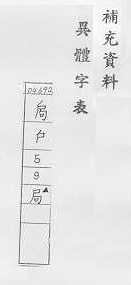 補充資料
異體字表
04692
局
户
5
9
局▲